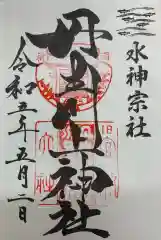 水神宗社
丹生川上神社
令和五年五月二日